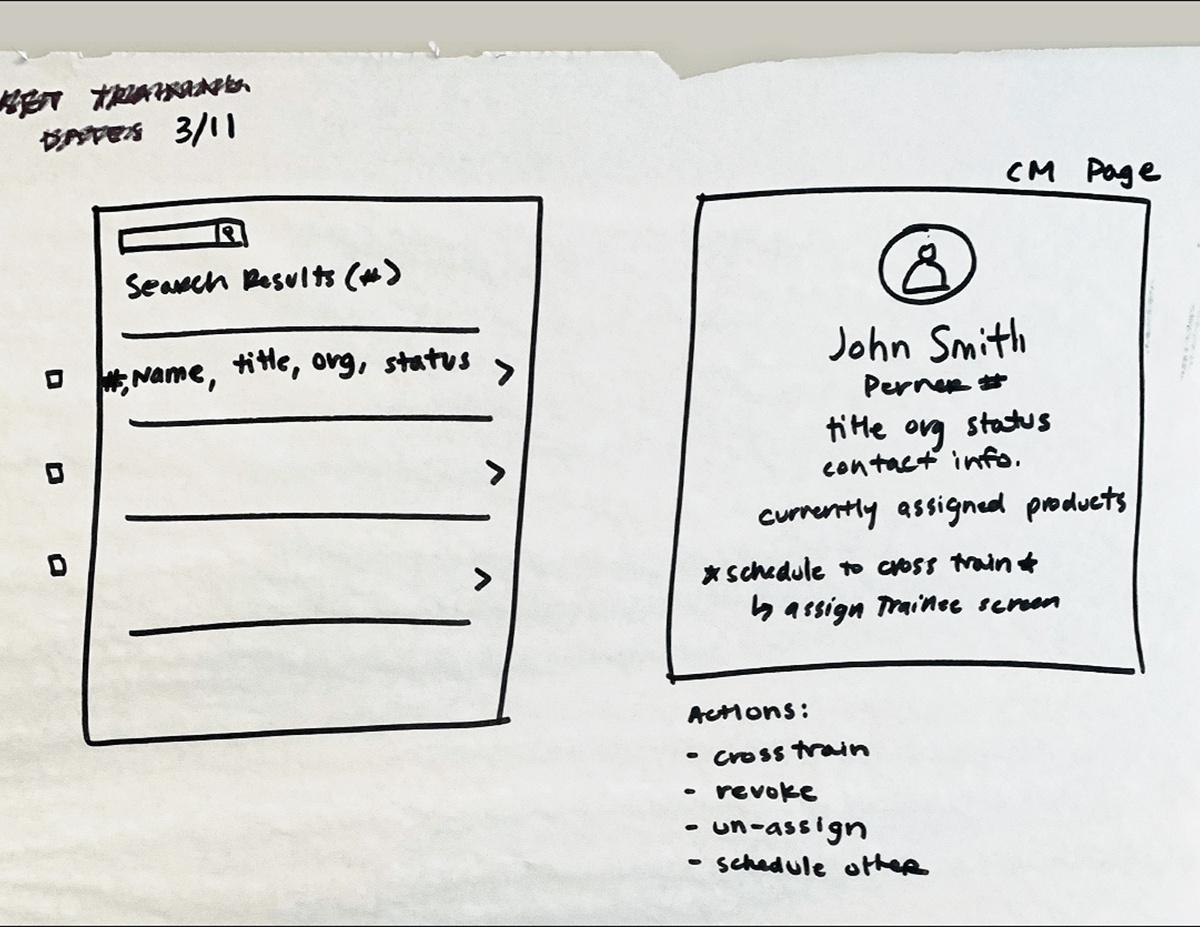 3/11
Search Results (#)
#, Name, title, org, status >
>
>
CM Page
John Smith
Perner #
title org status
contact info.
currently assigned products
*schedule to cross train*
↳ assign Trainee screen
Actions:
- cross train
- revoke
- un-assign
- schedule other